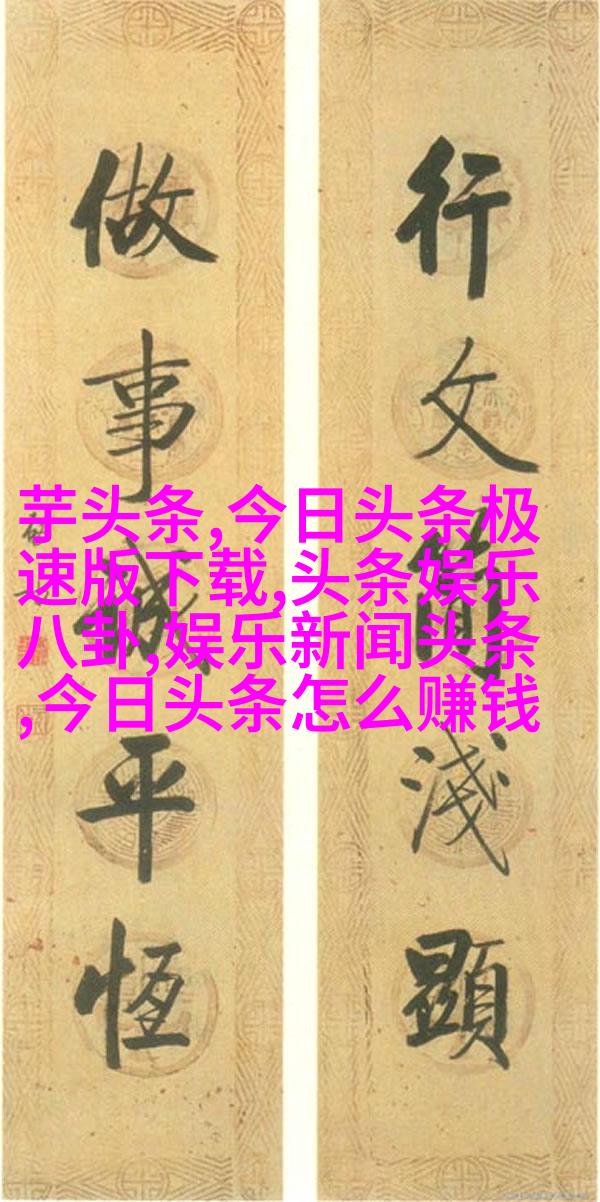 行文簡淺顯
做事誠平恆
芋头条,今日头条极
速版下载,头条娱乐
八卦,娱乐新闻头条
,今日头条怎么赚钱